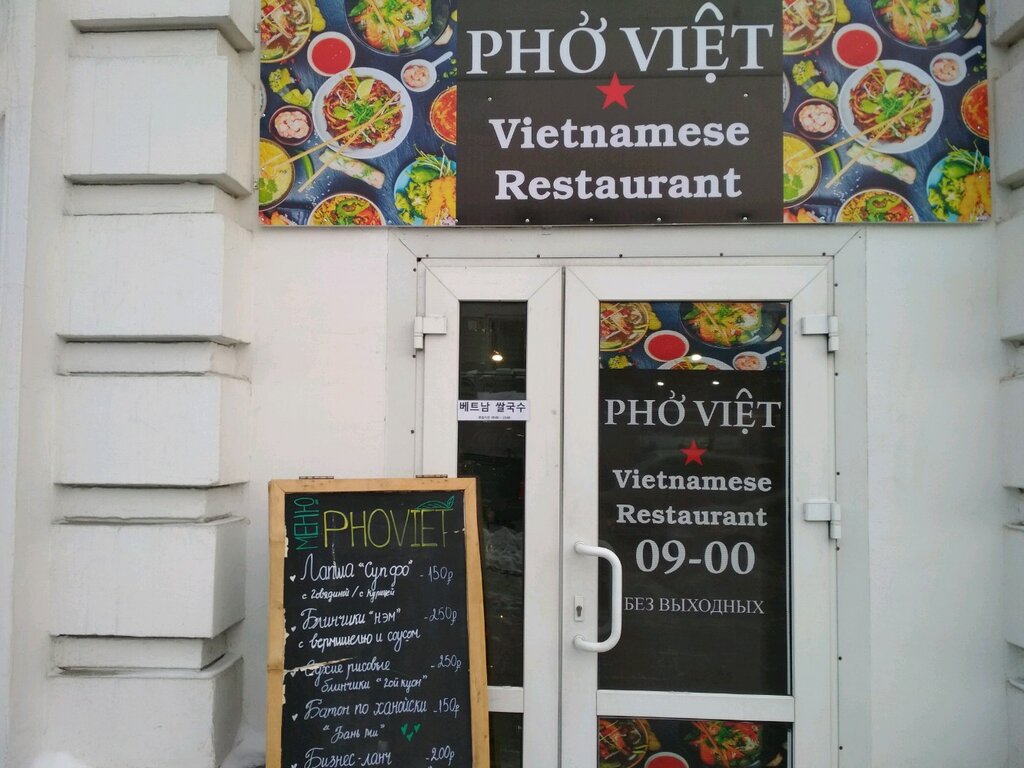 PHỞ VIỆT
Vietnamese
Restaurant
베트남 쌀국수
PHỞ VIỆT
Vietnamese
Restaurant
09-00
БЕЗ ВЫХОДНЫХ
МЕНЮ
PHOVIET
Лапша "Суп фо" -150р
с говядиной / с курицей
Блинчики "нэм" -250р
с вермишелью и соусом
Сухие рисовые -250р
блинчики "гой куон"
Батон по ханойски -150р
"Бань ми"
Бизнес-ланч -200р